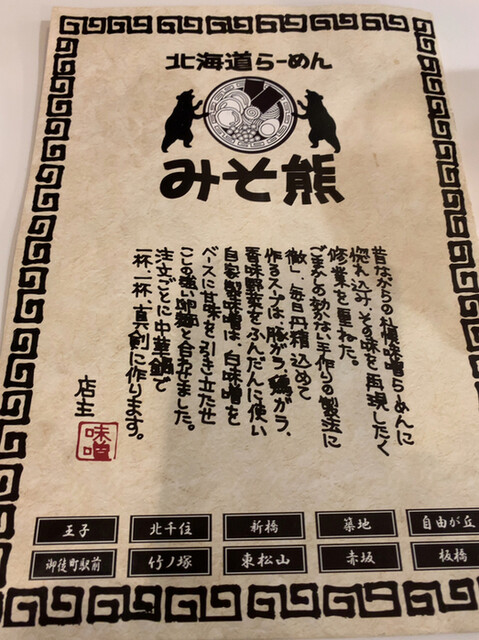 北海道らーめん
みそ熊
昔ながらの札幌味噌らーめんに
惚れ込み、その味を再現したく
修業を重ねた。
ごまかしの効かない手作りの製法に
徹し、毎日丹精込めて
作るスープは、豚がら、鶏がら、
香味野菜をふんだんに使い
自家製味噌は、白味噌を
ベースに甘味を引き立たせ
こしの強い卵麺と合わせました。
注文ごとに中華鍋で
一杯、一杯、真剣に作ります。
店主
味噌
王子
北千住
新橋
築地
自由が丘
御徒町駅前
竹ノ塚
東松山
赤坂
板橋